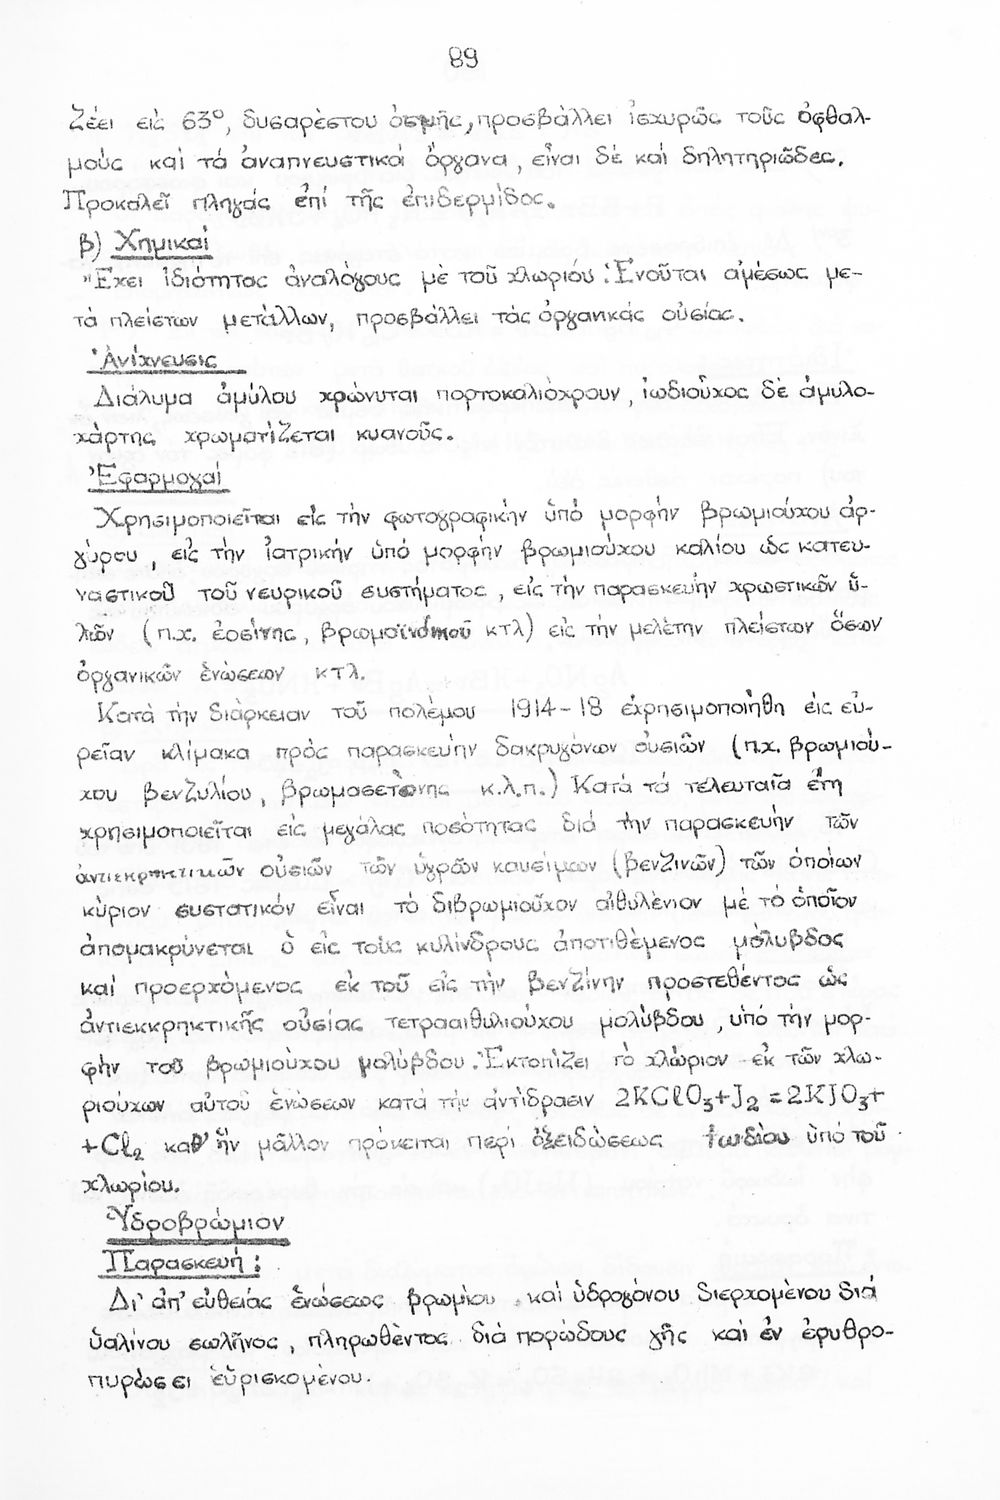 89
Ζέει εἰς 63°, δυσαρέστου ὀσμῆς, προσβάλλει ἰσχυρῶς τοὺς ὀφθαλ-
μούς καί τά ἀναπνευστικά ὄργανα, εἶναι δέ καί δηλητηριῶδες.
Προκαλεῖ πληγάς ἐπί τῆς ἐπιδερμίδος.
β) Χημικαί
Ἔχει ἰδιότητας ἀναλόγους μέ τοῦ χλωρίου. Ἑνοῦται ἀμέσως με-
τά πλείστων μετάλλων, προσβάλλει τάς ὀργανικάς οὐσίας.
Ἀνίχνευσις
Διάλυμα ἀμύλου χρώνυται πορτοκαλιόχρουν, ἰωδιοῦχος δέ ἀμυλο-
χάρτης χρωματίζεται κυανοῦς.
Ἐφαρμογαί
Χρησιμοποιεῖται εἰς τήν φωτογραφικήν ὑπό μορφήν βρωμιούχου ἀρ-
γύρου, εἰς τήν ἰατρικήν ὑπό μορφήν βρωμιούχου καλίου ὡς κατευ-
ναστικοῦ τοῦ νευρικοῦ συστήματος, εἰς τήν παρασκευήν χρωστικῶν ὑ-
λῶν (π.χ. ἐοσίνης, βρωμοϊνδικοῦ κτλ) εἰς τήν μελέτην πλείστων ὅσων
ὀργανικῶν ἑνώσεων κτλ.
Κατά τήν διάρκειαν τοῦ πολέμου 1914-18 ἐχρησιμοποιήθη εἰς εὐ-
ρεῖαν κλίμακα πρός παρασκευήν δακρυγόνων οὐσιῶν (π.χ. βρωμιού-
χου βενζυλίου, βρωμοσετόνης κ.λ.π.) Κατά τά τελευταῖα ἔτη
χρησιμοποιεῖται εἰς μεγάλας ποσότητας διά τήν παρασκευήν τῶν
ἀντιεκρηκτικῶν οὐσιῶν τῶν ὑγρῶν καυσίμων (βενζινῶν) τῶν ὁποίων
κύριον συστατικόν εἶναι τό διβρωμιοῦχον αἰθυλένιον μέ τό ὁποῖον
ἀπομακρύνεται ὁ εἰς τούς κυλίνδρους ἀποτιθέμενος μόλυβδος
καί προερχόμενος ἐκ τοῦ εἰς τήν βενζίνην προστεθέντος ὡς
ἀντιεκκρηκτικῆς οὐσίας τετρααιθυλιούχου μολύβδου, ὑπό τήν μορ-
φήν τοῦ βρωμιούχου μολύβδου. Ἐκτοπίζει τό χλώριον ἐκ τῶν χλω-
ριούχων αὐτοῦ ἑνώσεων κατά τήν ἀντίδρασιν 2KClO₃+J₂=2KJO₃+
+Cl₂ καθ' ἥν μᾶλλον πρόκειται περί ὀξειδώσεως ἰωδίου ὑπό τοῦ
χλωρίου.
Ὑδροβρώμιον
Παρασκευή:
Δι' ἀπ' εὐθείας ἑνώσεως βρωμίου καί ὑδρογόνου διερχομένου διά
ὑαλίνου σωλῆνος, πληρωθέντος διά πορώδους γῆς καί ἐν ἐρυθρο-
πυρώσει εὑρισκομένου.